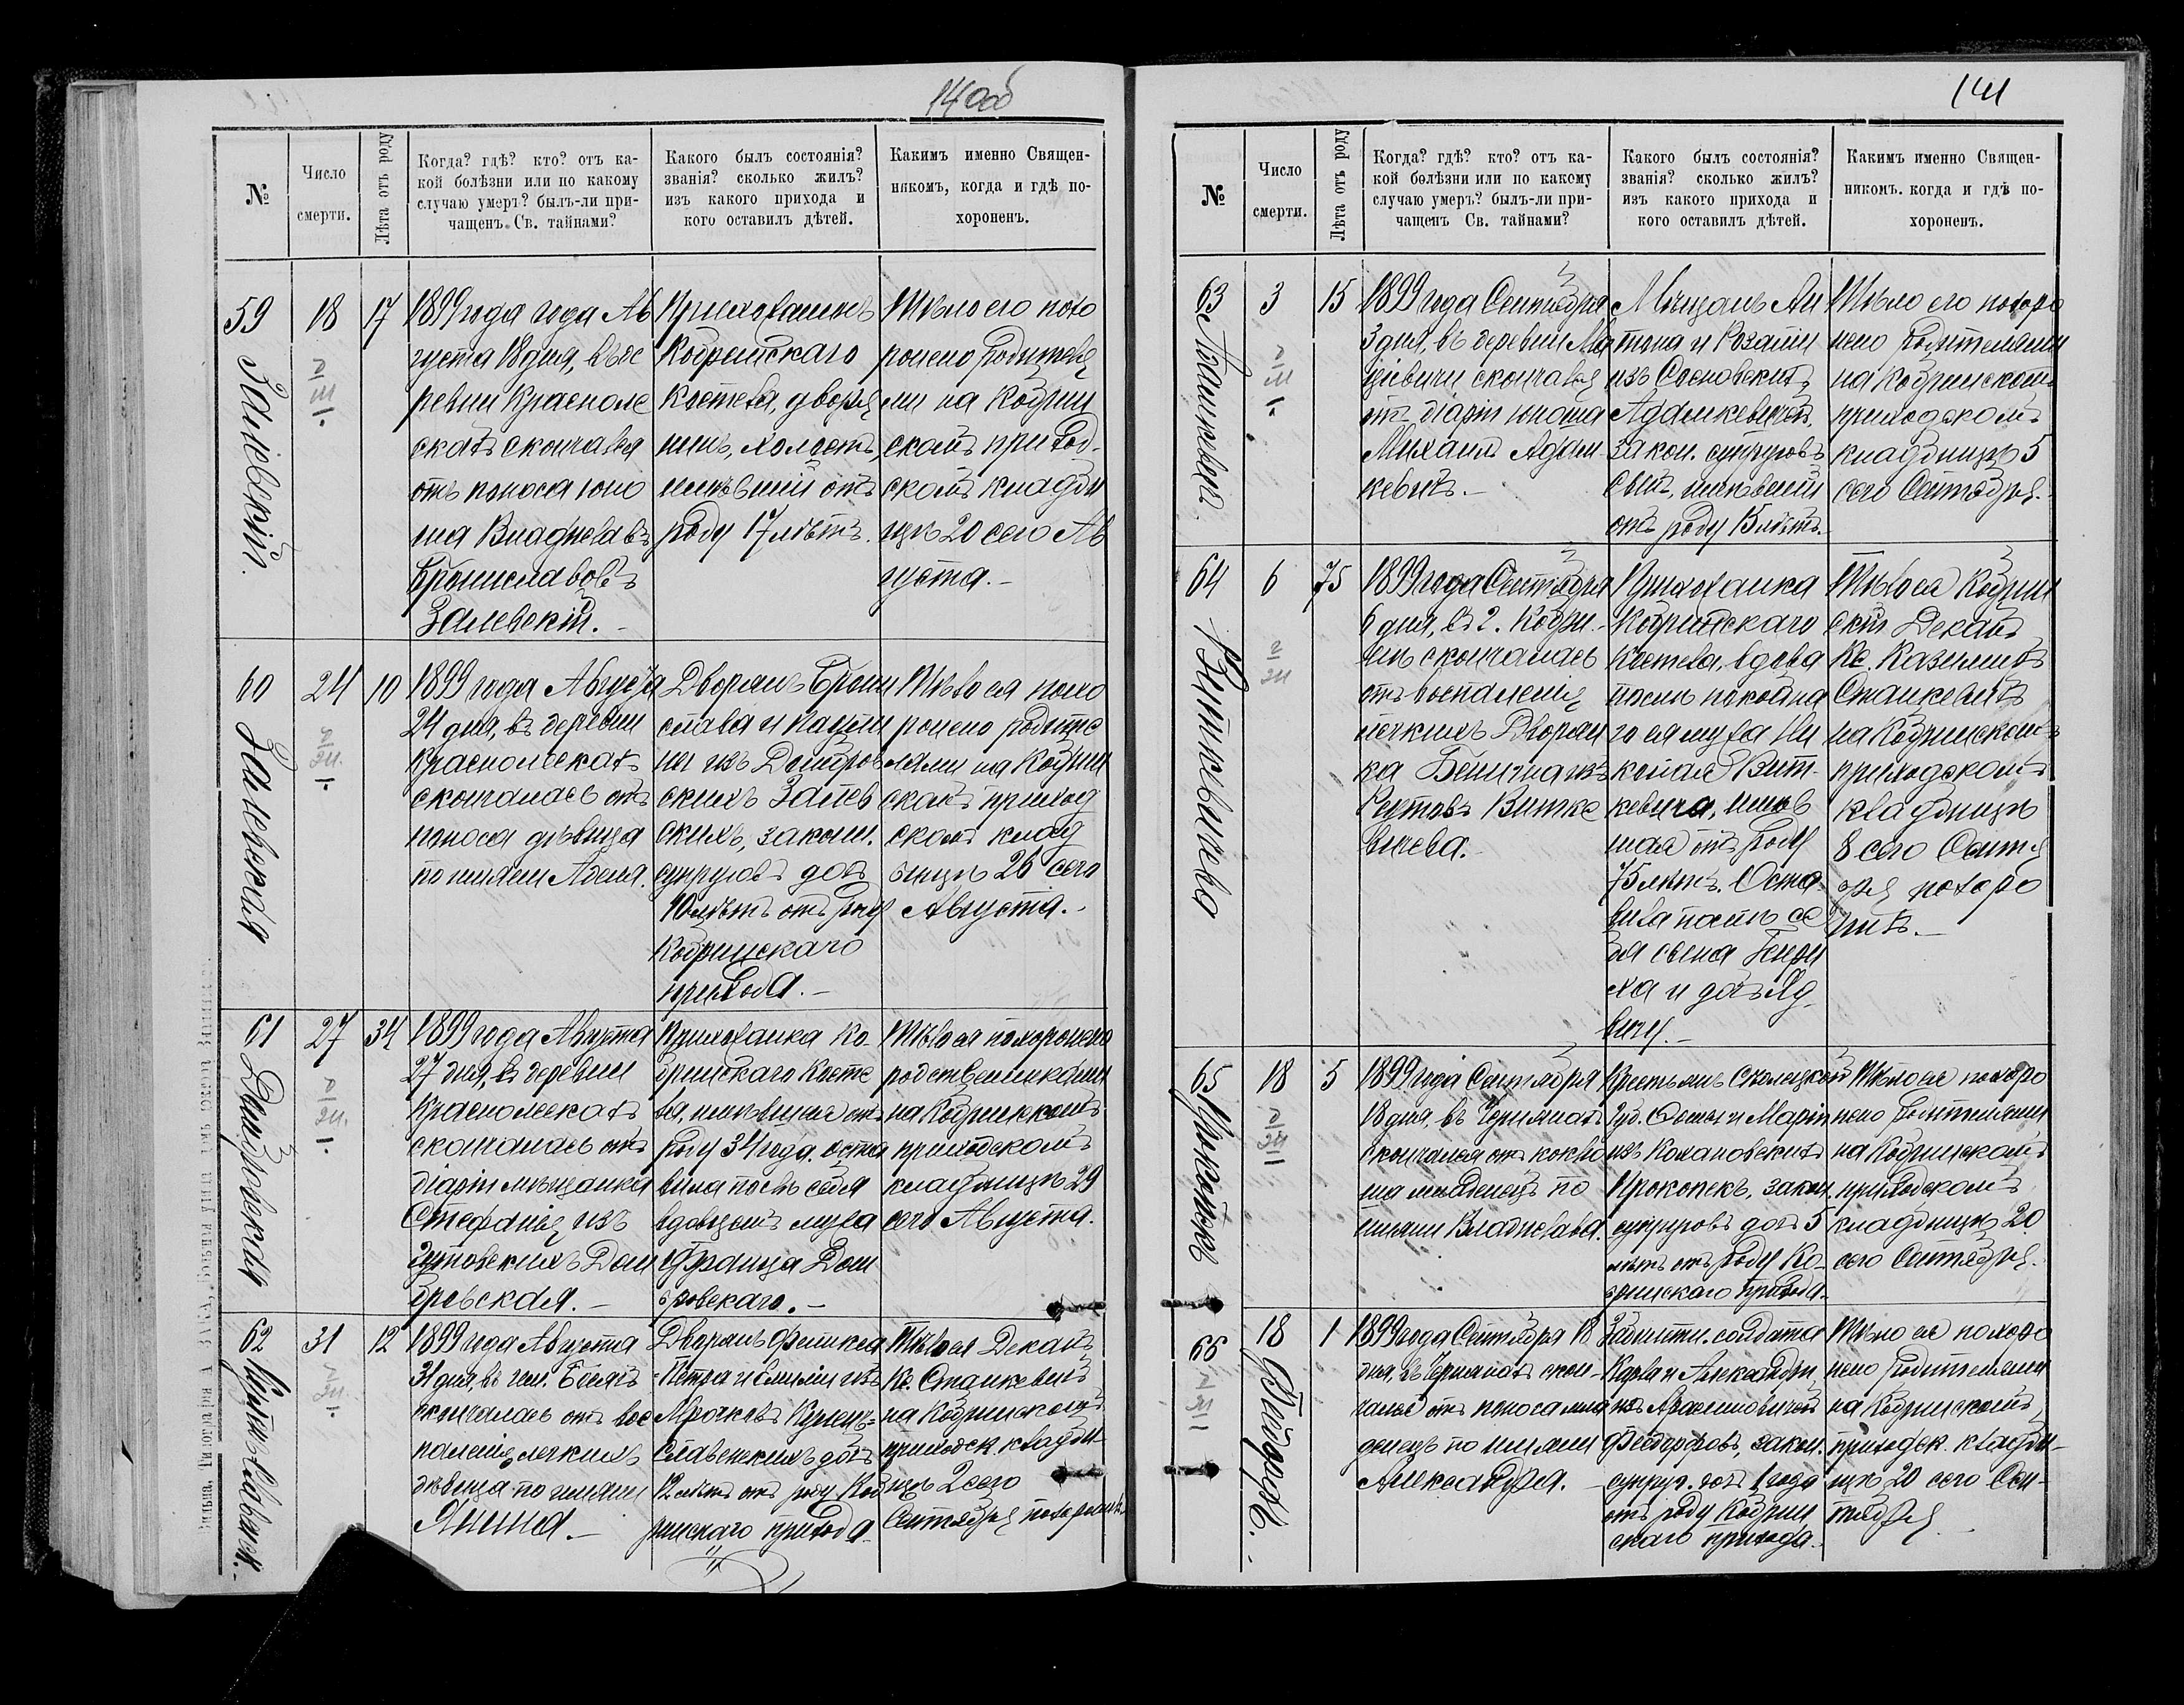 140об
№
Число
смерти.
Лѣта отъ роду
Когда? гдѣ? кто? отъ ка-
кой болѣзни или по какому
случаю умеръ? былъ-ли при-
чащенъ Св. тайнами?
Какого былъ состоянія?
званія? сколько жилъ?
изъ какого прихода и
кого оставилъ дѣтей.
Какимъ именно Священ-
никомъ, когда и гдѣ по-
хороненъ.
59
Залевскій.
18
17
1899 года года Ав
густа 18 дня, въ де
ревни Красноле
скахъ скончался
отъ поноса юно
ша Владиславъ
Брониславовъ
Залевскій.
Прихожанинъ
Кобринскаго
Костела, дворя
нинъ, холостъ,
имѣвшій отъ
роду 17 лѣтъ.
Тѣло его похо
ронено родителя
ми на Кобрин
скомъ приход-
скомъ кладби
щѣ 20 сего Ав
густа.
60
Залевская
24
10
1899 года Августа
24 дня, въ деревни
Краснолескахъ
скончалась отъ
поноса дѣвица
по имени Адель.
Дворянъ Брони
слава и Паули
ны изъ Домбров
скихъ Залев
скихъ, закон.
супруговъ дочь
10 лѣтъ отъ роду
Кобринскаго
прихода.
Тѣло ея похо
ронено родите
лями на Кобрин
скомъ приход
скомъ клад
бищѣ 26 сего
Августа.
61
Домбровская
27
34
1899 года Августа
27 дня, въ деревни
Краснолескахъ
скончалась отъ
діаріи мѣщанка
Стефанія изъ
Домбровская.
Прихожанка Ко-
бринскаго Косте
ла, имѣвшая отъ
роду 34 года. Оста
вила послѣ себя
вдовцемъ мужа
Франца Дом
бровскаго.
Тѣло ея похоронено
родственниками
на Кобринскомъ
приходскомъ
кладбищѣ 29
сего Августа.
62
31
12
1899 года Августа
31 дня, въ им.
скончалась отъ вос
паленія легкихъ
дѣвица по имени
Янина.
Дворянъ Феликса
Петра и Емиліи изъ
славскихъ дочь
12 лѣтъ отъ роду Коб
ринскаго прихода.
Тѣло ея Деканъ
Кс. Станкевичъ
на Кобринскомъ
приходск. кладби-
щѣ 2 сего
Сентября похоронилъ.
141
№
Число
смерти.
Лѣта отъ роду
Когда? гдѣ? кто? отъ ка-
кой болѣзни или по какому
случаю умеръ? былъ-ли при-
чащенъ Св. тайнами?
Какого былъ состоянія?
званія? сколько жилъ?
изъ какого прихода и
кого оставилъ дѣтей.
Какимъ именно Священ-
никомъ. когда и гдѣ по-
хороненъ.
63
Адамкевичъ.
3
15
1899 года Сентября
3 дня, въ деревни Ма
цѣевичи скончался
отъ діаріи юноша
Михаилъ Адам-
кевичъ.
Мѣщанъ Ан
тона и Розаліи
изъ Сосновскихъ
Адамкевичей,
закон. супруговъ
сынъ, имѣвшій
отъ роду 15 лѣтъ.
Тѣло его похоро
нено родителями
на Кобринскомъ
приходскомъ
кладбищѣ 5
сего Сентября.
64
Виткевичева
6
75
1899 года Сентября
6 дня, въ г. Кобри-
нѣ скончалась
отъ воспаленія
легкихъ Дворян
ка Бенигна изъ
Витке
вичева.
Прихожанка
Кобринскаго
Костела, вдова
послѣ покойна
го ея мужа Ни
колая Вит-
кевича, имѣв
шая отъ роду
75 лѣтъ. Оста
вила послѣ се
бя сына Генри
ха и дочь Яд
вигу.
Тѣло ея Кобрин
скій Деканъ
Кс. Казимиръ
Станкевичъ
на Кобринскомъ
приходскомъ
кладбищѣ
8 сего Сентя
бря похоро
нилъ.
65
Прокопекъ
18
5
1899 года Сентября
18 дня, въ Чернянахъ
скончался отъ коклю
ша младенецъ по
имени Владислава.
Крестьянъ Сѣдлецкой
Губ. Осипа и Маріи
изъ Кохановскихъ
Прокопекъ, закон.
супруговъ дочь 5
лѣтъ отъ роду Ко-
бринскаго прихода.
Тѣло ея похоро
нено родителями
на Кобринскомъ
приходскомъ
кладбищѣ 20
сего Сентября.
66
18
1
1899 года Сентября 18
дня, въ Чернянахъ скон-
чался отъ поноса мла
денецъ по имени
Александра.
солдата
Карла и Александры
закон.
супруг. дочь 1 года
отъ роду Кобрин
скаго прихода.
Тѣло ея похоро
нено родителями
на Кобринскомъ
приходск. кладби-
щѣ 20 сего Сен-
тября.